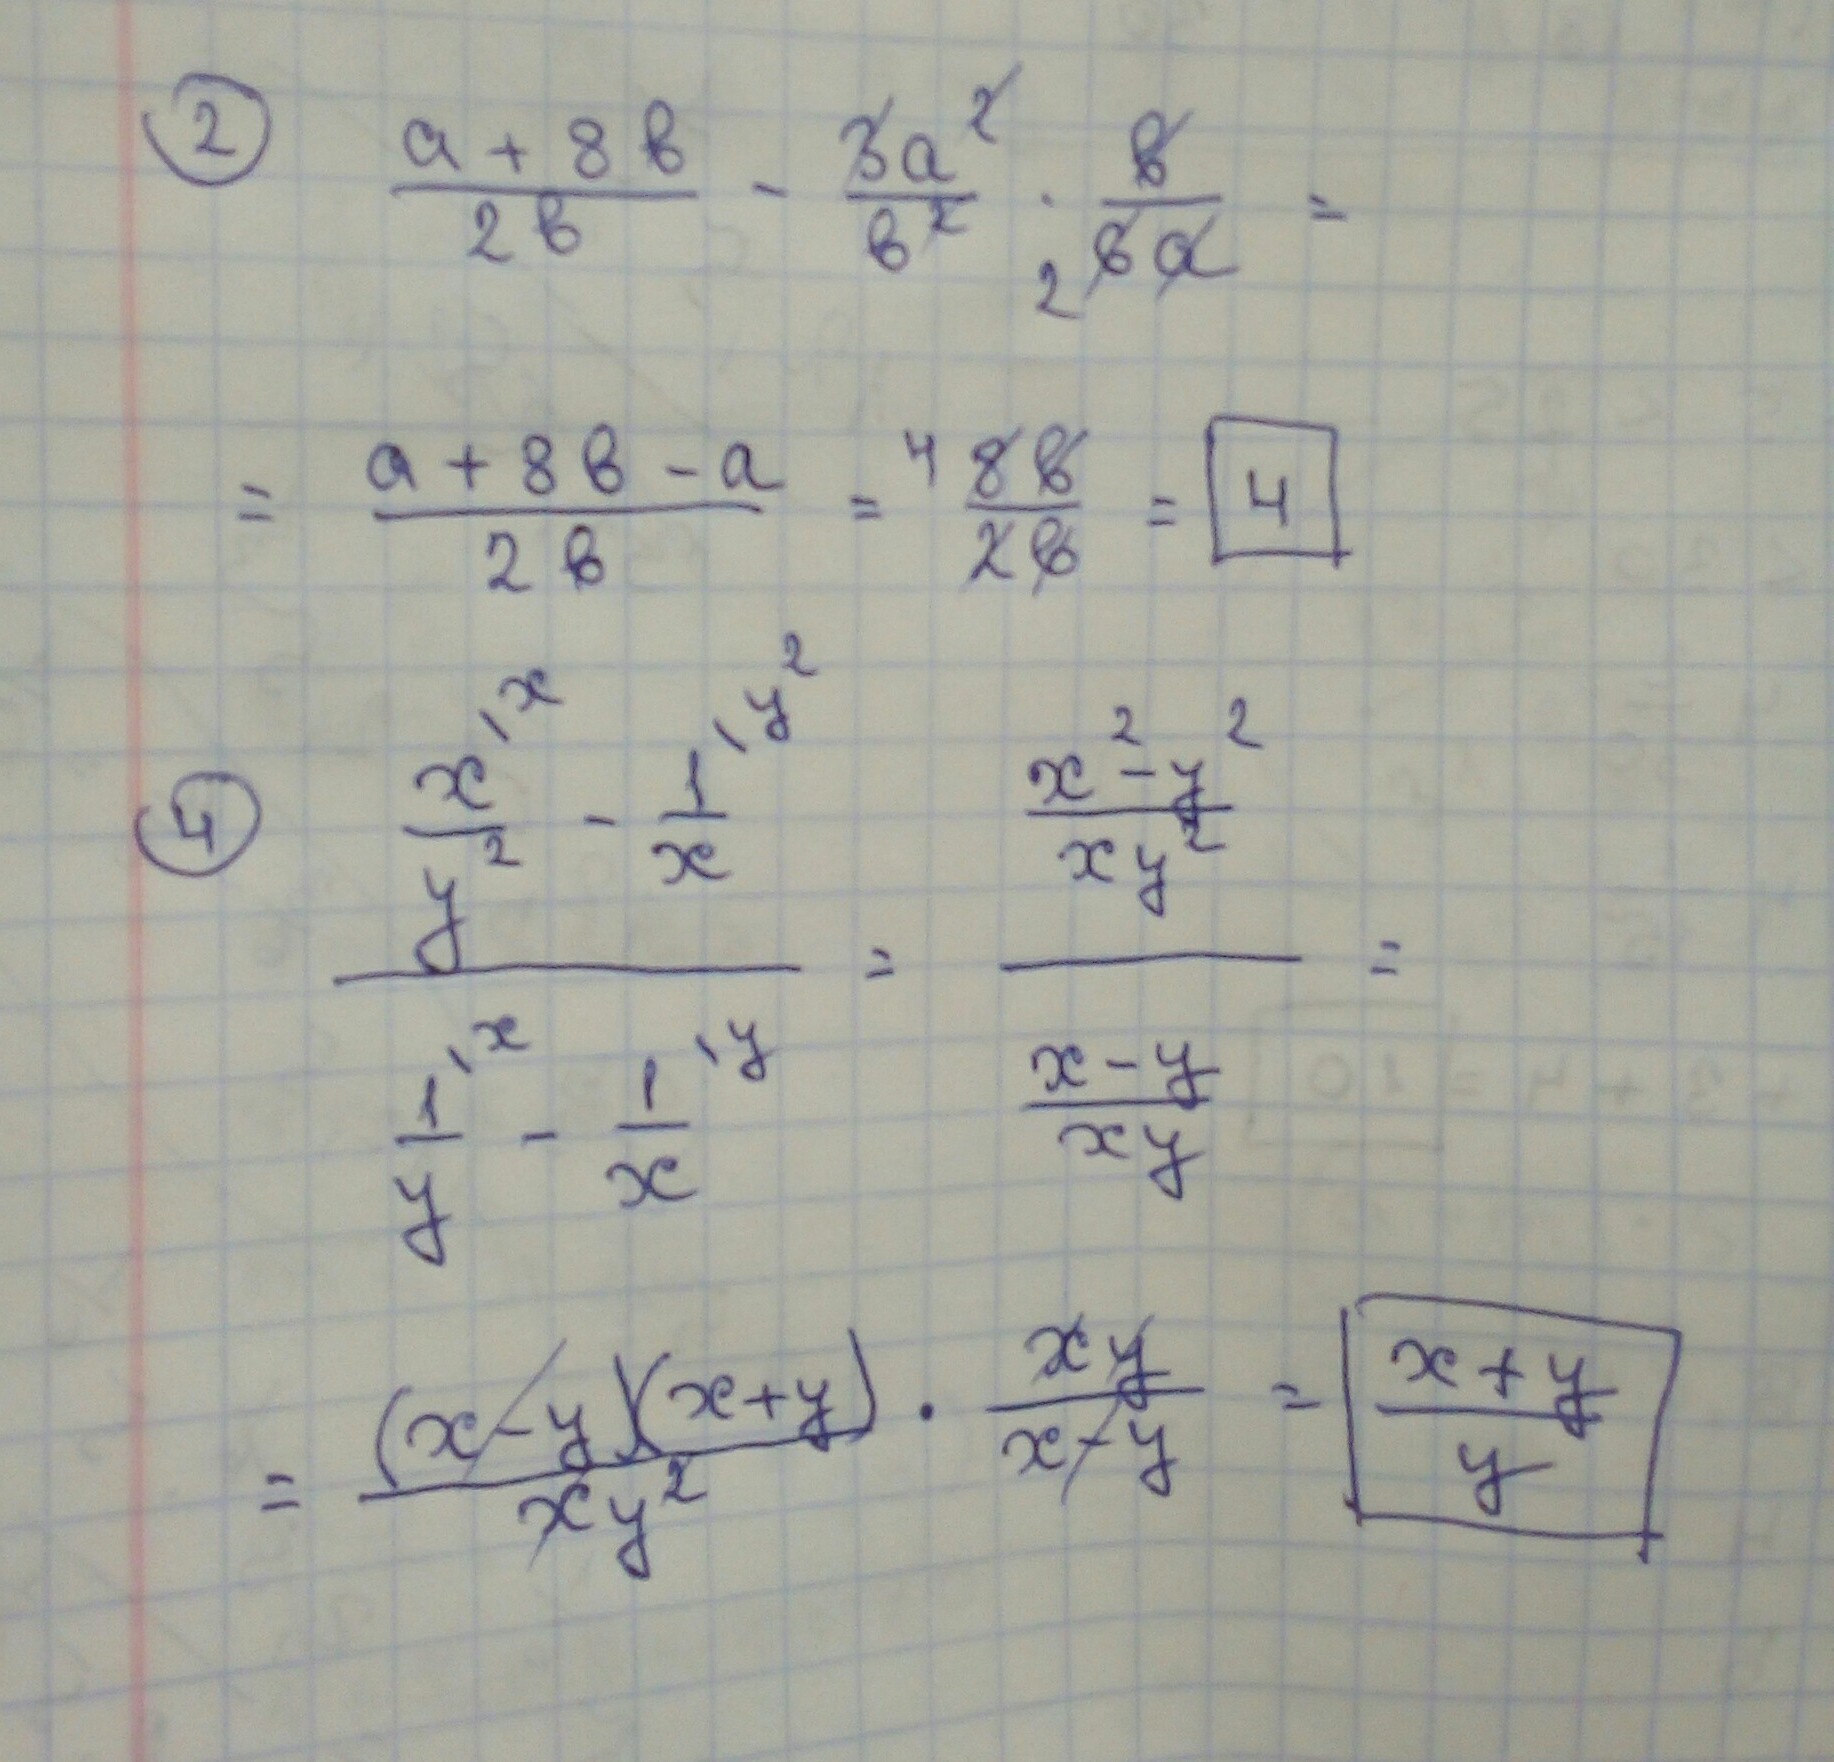 ② (a + 8b)/(2b) - (3a²)/(b²) · b/(6a) =
2
= (a + 8b - a)/(2b) = 4 (8b)/(2b) = 4
④ (x/y² \x - 1/x \y²)/(1/y \x - 1/x \y) = ((x² - y²)/(xy²))/((x - y)/(xy)) =
= ((x - y)(x + y))/(xy²) · (xy)/(x - y) = (x + y)/y